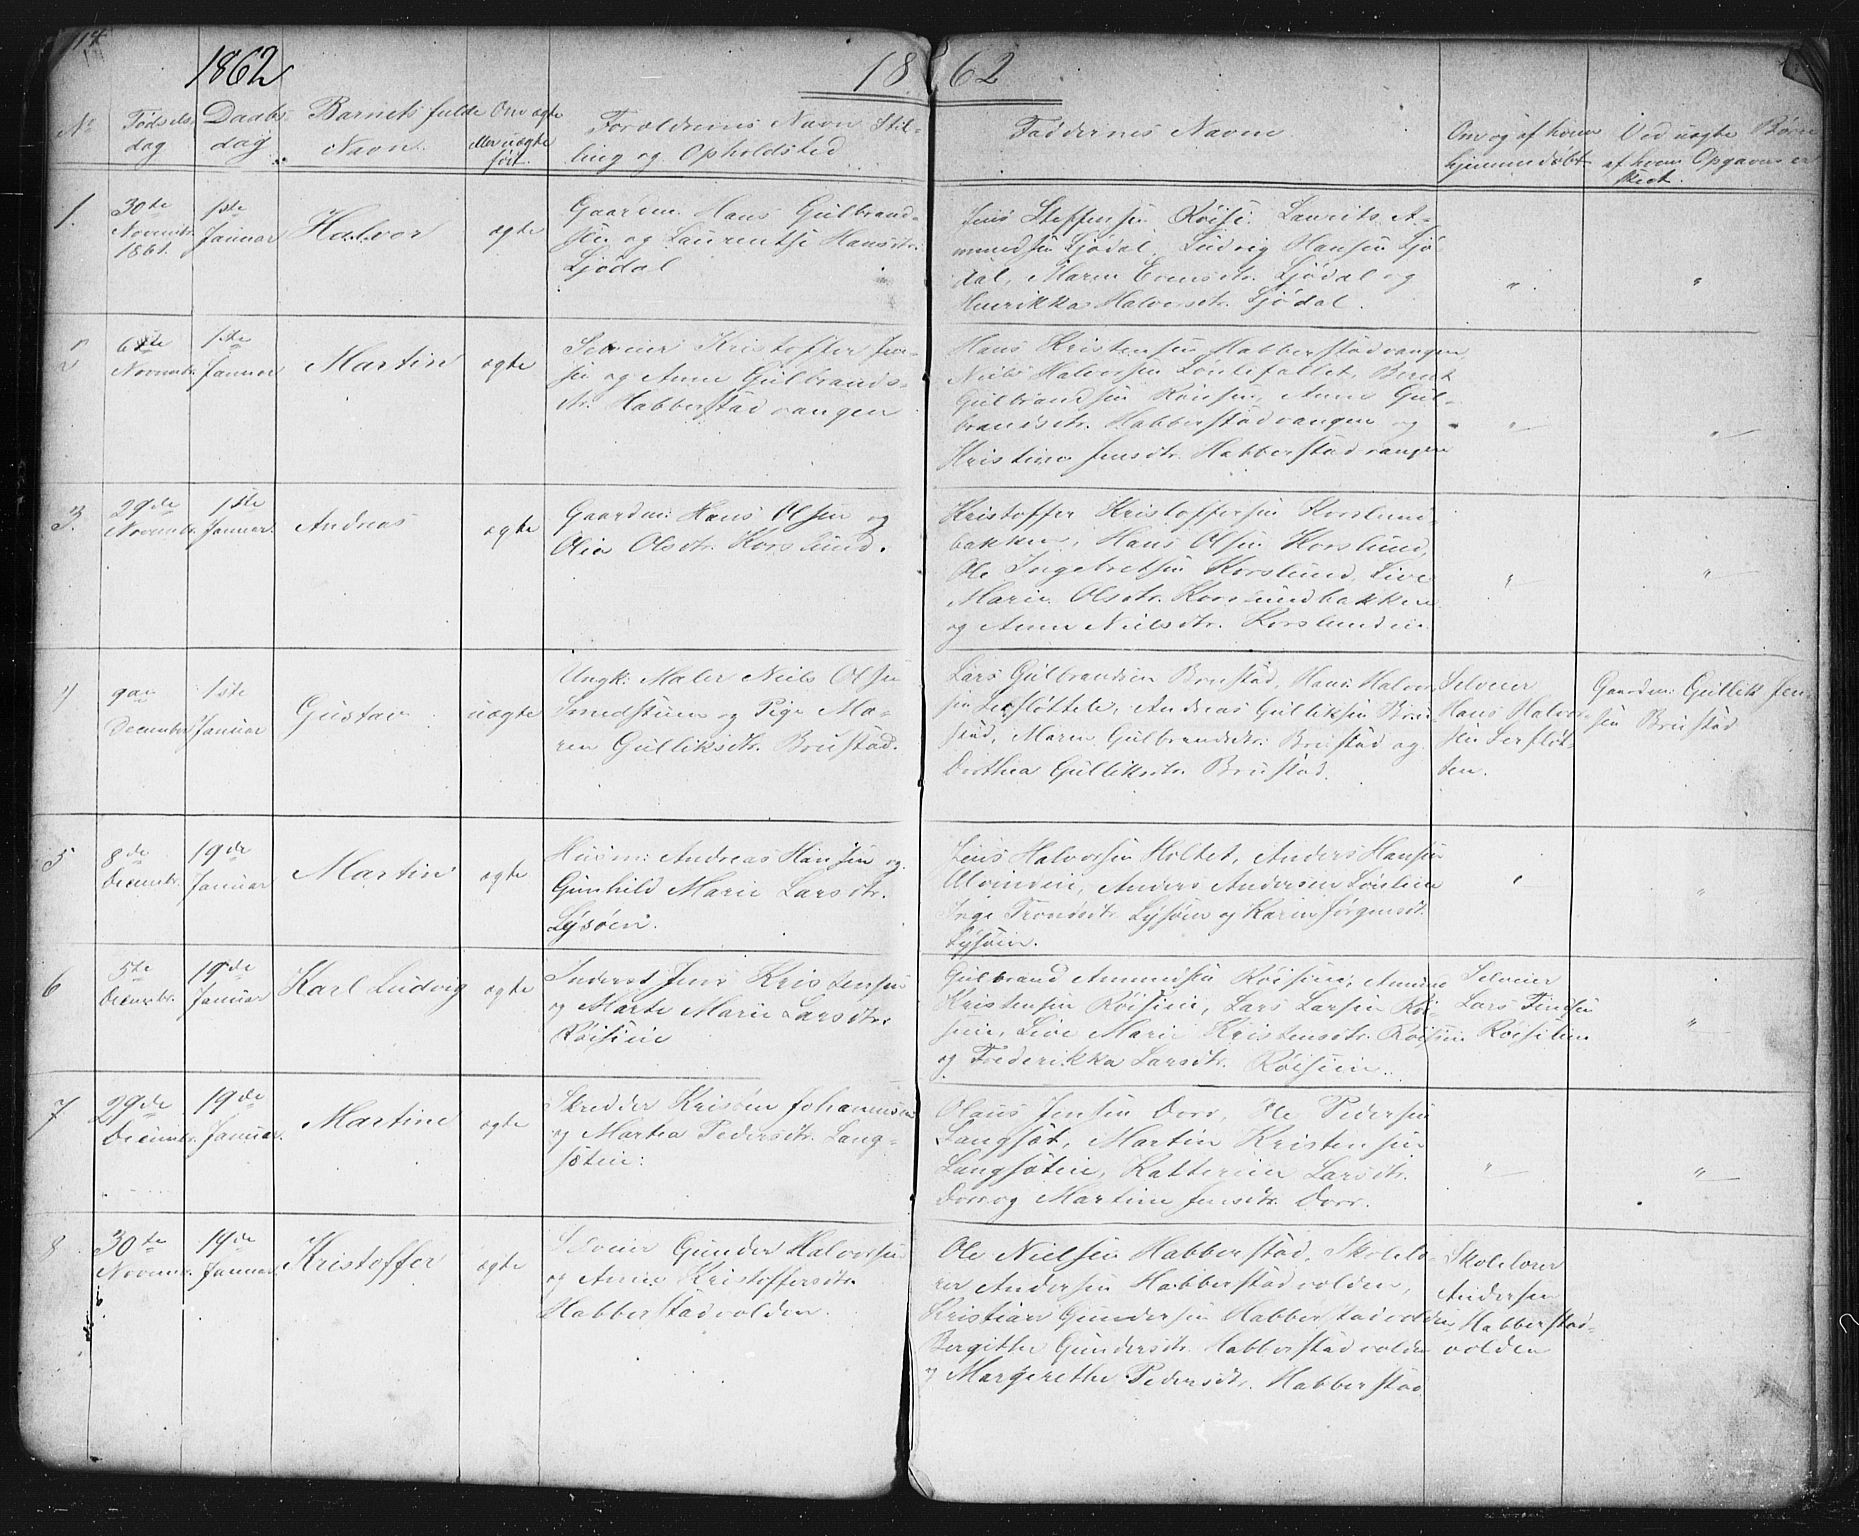 14
1862
1862
No
Fødsels-
dag
Daabs
dag
Barnets fulde
Navn
Om ægte
eller uægte
født.
Forældrenes Navn Stil-
ling og Opholdsted
Faddernes Navne
Om og af hvem
hjemmedøbt
Ved uægte Børn
af hvem Opgaven er
skeet.
1.
30te
Novembr.
1861.
1ste
Januar
Halvor
ægte
Gaardm. Hans Gulbrand-
sen og Laurentse Hansdtr.
Ljødal
Jens Steffensen Röise. Laurits A-
mundsen Ljødal, Ludvig Hansen Ljö-
dal, Maren Evensdtr. Ljødal og
Henrikka Halvorsdtr. Ljödal.
"
"
2
6te
Novembr.
1ste
Januar
Martin
ægte
Selveier Kristoffer Jen-
sen og Anne Gulbrands-
dtr. Habberstadvangen
Hans Kristensen Habberstadvangen
Niels Halvorsen, Bernt
Gulbrandsen Röisen, Anne Gul-
brandsdtr. Habberstadvangen og
Kristine Jensdtr. Habberstadvangen
"
"
3.
29de
Novembr.
1ste
Januar.
Andreas
ægte
Gaardm: Hans Olsen og
Olia Olsdtr. Korslund.
Kristoffer Kristoffersen Korslund-
bakken, Hans Olsen Korslund,
Ole Ingebretsen Korslund, Live
Marie Olsdtr. Korslundbakken
og Anne Nielsdtr. Korslundeie
"
"
4
9de
December
1ste
Januar
Gustav
uægte
Ungk: Maler Niels Olsen
Smedstuen og Pige Ma-
ren Gulliksdtr. Brustad.
Lars Gulbrandsen Brustad, Hans Halvor-
sen, Andreas Gulliksen Bru-
stad, Maren Gulbrandsdtr. Brustad og
Dorthea Gulliksdtr. Brustad.
Selveier
Hans Halvor-
sen
ten.
Gaardm: Gullik Jen-
sen Brustad
5
8de
Decembr.
19de
Januar
Martin
ægte
Husm: Andreas Hansen og
Gunhild Marie Larsdtr.
Lysöen.
Jens Halvorsen Holtet, Anders Hansen
Anders Andersen
Inge Trondsdtr. Lysöen og Karen Jørgensdtr.
Lysöen.
"
"
6
5te
Decembr.
19de
Januar
Karl Ludvig
ægte
Inderst Jens Kristensen
og Marte Marie Larsdtr.
Röiseie
Gulbrand Amundsen Röiseie, Amund
Kristensen Röiseie, Lars Larsen Röi-
seie, Live Marie Kristensdtr. Röiseie
og Frederikka Larsdtr. Röiseie.
Selveier
Lars
"
7
29de
Decembr.
19de
Januar.
Martine
ægte
Skredder Kristen Johannesen
og Martea Pedersdtr. Lang-
sæteie:
Olaus Jensen Dorr, Ole Pedersen
Langsæt, Martin Kristensen
Langsæteie, Katterine Larsdtr.
Dorr og Martine Jensdtr. Dorr.
"
"
8
30te
Novembr.
19de
Januar
Kristoffer
ægte
Selveier Gunder Halvorsen
og Anne Kristoffersdtr.
Habberstadvolden.
Ole Nielsen Habberstad, Skolelæ-
rer Andersen Habberstadvolden,
Kristian Gundersen Habberstadvolden,
Bergitte Gundersdtr. Habberstadvolden
og Margrethe Pedersdtr. Habberstad
Skolelærer
Andersen
Habberstad-
volden